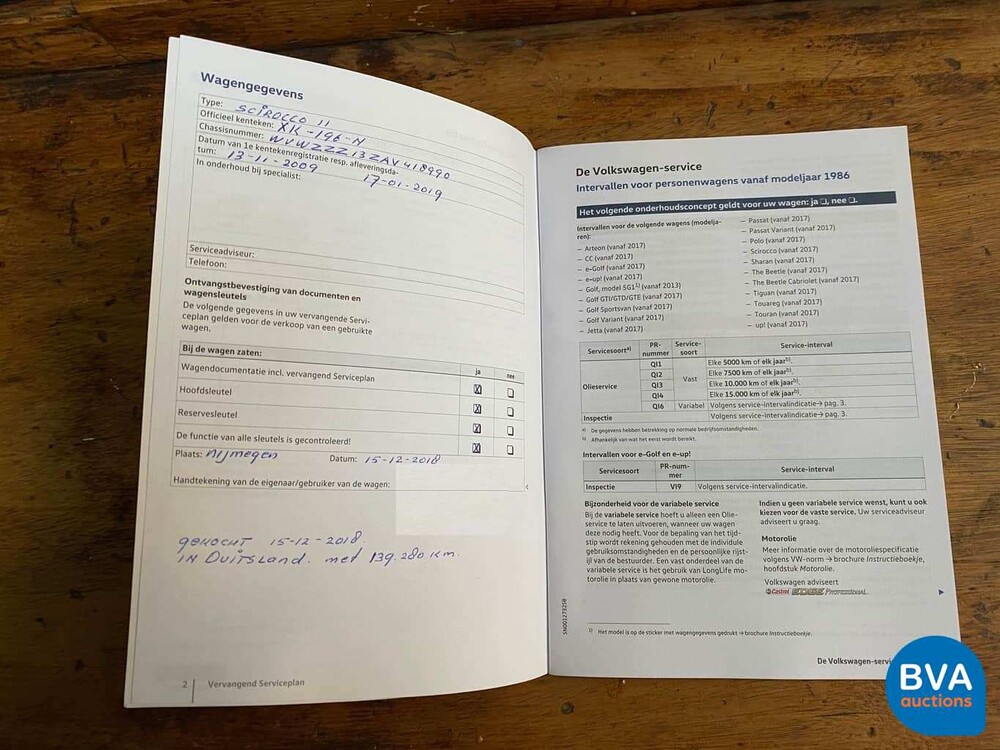 Wagengegevens
Type: SCIROCCO II
Officieel kenteken: XK-196-N
Chassisnummer: WVWZZZ13ZAV418990
Datum van 1e kentekenregistratie resp. afleveringsda-
tum: 13-11-2009 17-01-2019
In onderhoud bij specialist:
Serviceadviseur:
Telefoon:
Ontvangstbevestiging van documenten en
wagensleutels
De volgende gegevens in uw vervangende Servi-
ceplan gelden voor de verkoop van een gebruikte
wagen.
Bij de wagen zaten: ja nee
Wagendocumentatie incl. vervangend Serviceplan
Hoofdsleutel
Reservesleutel
De functie van alle sleutels is gecontroleerd!
Plaats: Nijmegen Datum: 15-12-2018
Handtekening van de eigenaar/gebruiker van de wagen:
gekocht 15-12-2018
in Duitsland. met 139.280 km.
2 Vervangend Serviceplan
De Volkswagen-service
Intervallen voor personenwagens vanaf modeljaar 1986
Het volgende onderhoudsconcept geldt voor uw wagen: ja ❑, nee ❑.
Intervallen voor de volgende wagens (modelja-
ren):
— Arteon (vanaf 2017)
— CC (vanaf 2017)
— e-Golf (vanaf 2017)
— e-up! (vanaf 2017)
— Golf, model 5G1¹⁾ (vanaf 2013)
— Golf GTI/GTD/GTE (vanaf 2017)
— Golf Sportsvan (vanaf 2017)
— Golf Variant (vanaf 2017)
— Jetta (vanaf 2017)
— Passat (vanaf 2017)
— Passat Variant (vanaf 2017)
— Polo (vanaf 2017)
— Scirocco (vanaf 2017)
— Sharan (vanaf 2017)
— The Beetle (vanaf 2017)
— The Beetle Cabriolet (vanaf 2017)
— Tiguan (vanaf 2017)
— Touareg (vanaf 2017)
— Touran (vanaf 2017)
— up! (vanaf 2017)
Servicesoortᵃ⁾ PR-nummer Service-soort Service-interval
Olieservice QI1 Vast Elke 5000 km of elk jaarᵇ⁾.
QI2 Elke 7500 km of elk jaarᵇ⁾.
QI3 Elke 10.000 km of elk jaarᵇ⁾.
QI4 Elke 15.000 km of elk jaarᵇ⁾.
QI6 Variabel Volgens service-intervalindicatie → pag. 3.
Inspectie Volgens service-intervalindicatie → pag. 3.
ᵃ⁾ De gegevens hebben betrekking op normale bedrijfsomstandigheden.
ᵇ⁾ Afhankelijk van wat het eerst wordt bereikt.
Intervallen voor e-Golf en e-up!
Servicesoort PR-num-mer Service-interval
Inspectie VI9 Volgens service-intervalindicatie.
Bijzonderheid voor de variabele service
Bij de variabele service hoeft u alleen een Olie-
service te laten uitvoeren, wanneer uw wagen
deze nodig heeft. Voor de bepaling van het tijd-
stip wordt rekening gehouden met de individuele
gebruiksomstandigheden en de persoonlijke rijst-
ijl van de bestuurder. Een vast onderdeel van de
variabele service is het gebruik van LongLife mo-
torolie in plaats van gewone motorolie.
Indien u geen variabele service wenst, kunt u ook
kiezen voor de vaste service. Uw serviceadviseur
adviseert u graag.
Motorolie
Meer informatie over de motoroliespecificatie
volgens VW-norm → brochure Instructieboekje,
hoofdstuk Motorolie.
Volkswagen adviseert
Castrol EDGE PROFESSIONAL
¹⁾ Het model is op de sticker met wagengegevens gedrukt → brochure Instructieboekje.
SN001273258
De Volkswagen-servi
BVA
auctions